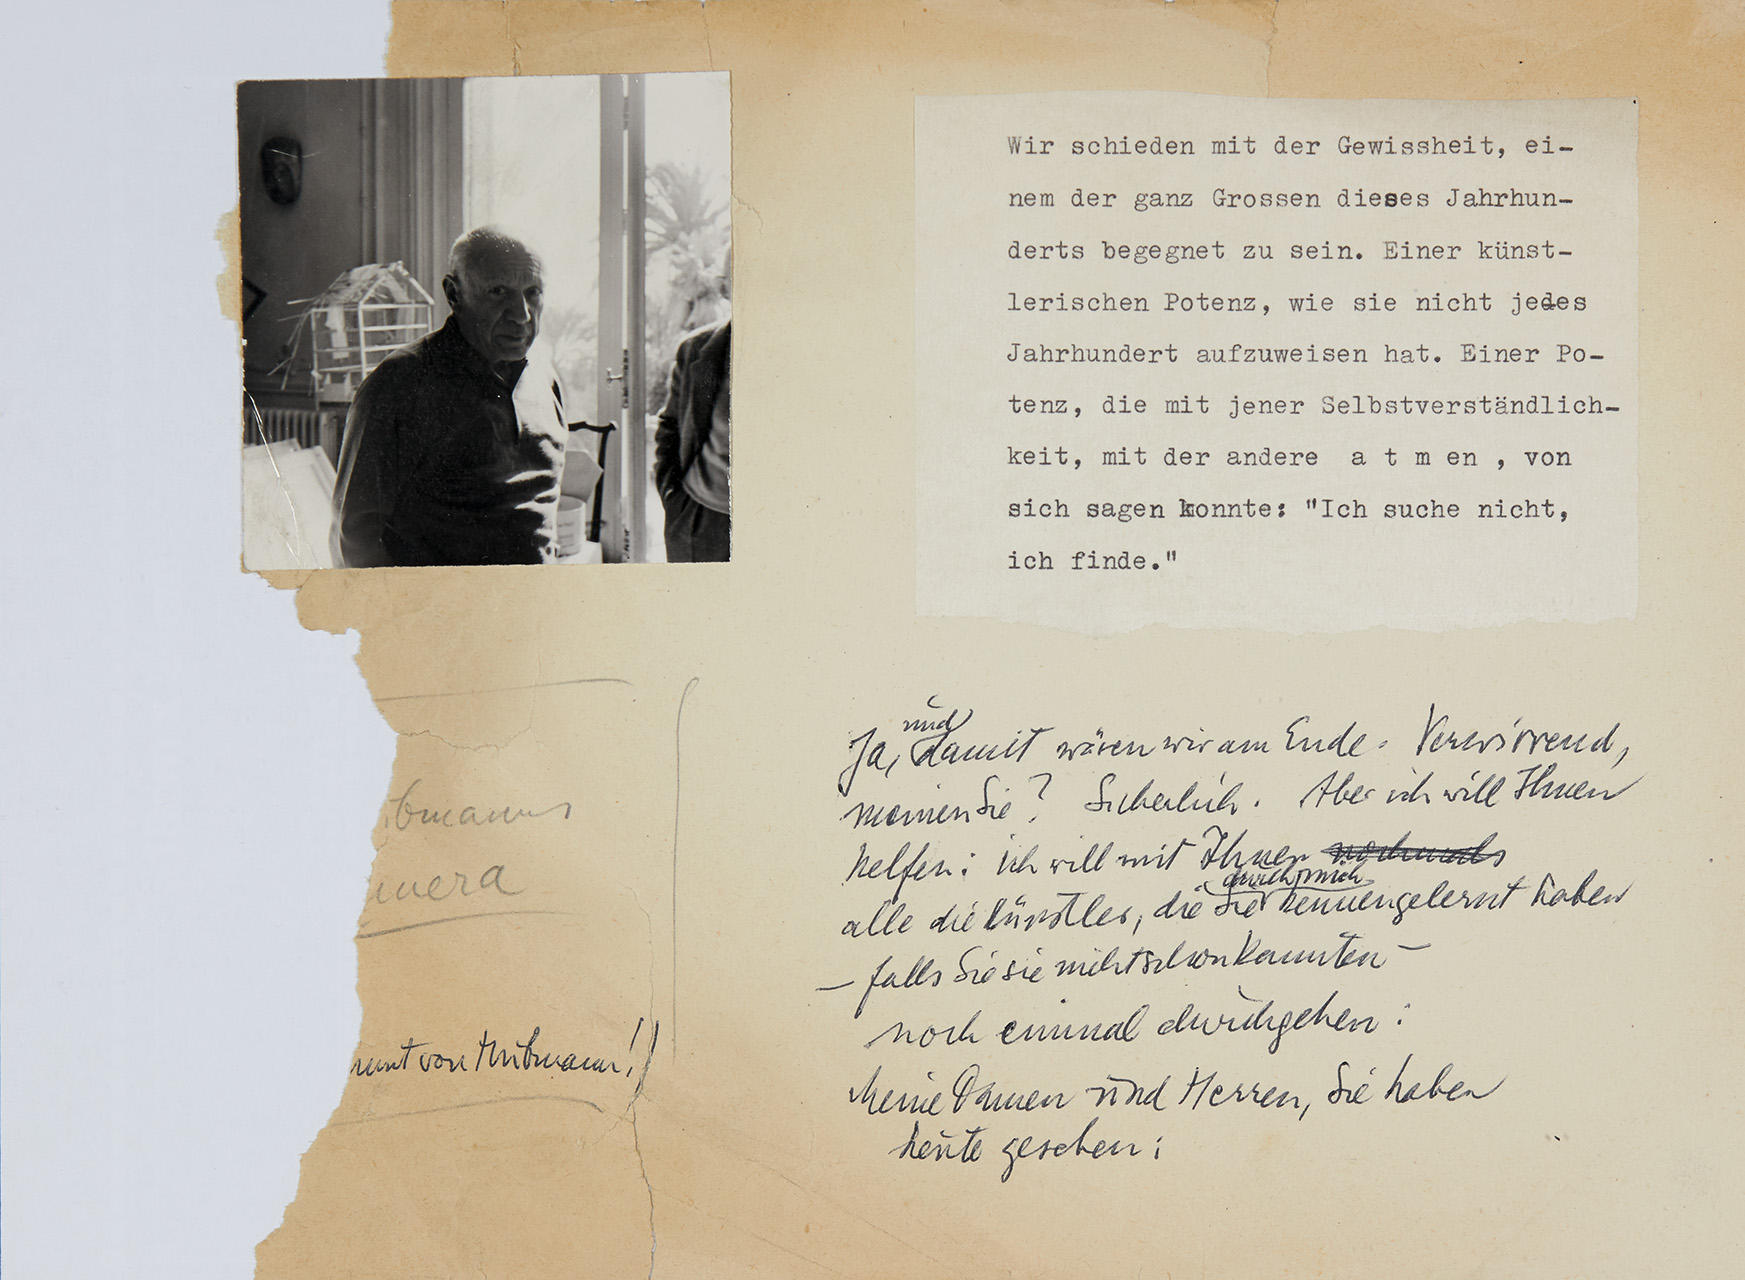 Wir schieden mit der Gewissheit, ei-
nem der ganz Grossen dieses Jahrhun-
derts begegnet zu sein. Einer künst-
lerischen Potenz, wie sie nicht jedes
Jahrhundert aufzuweisen hat. Einer Po-
tenz, die mit jener Selbstverständlich-
keit, mit der andere a t m en , von
sich sagen konnte: "Ich suche nicht,
ich finde."
bmanns
mera
nnt von Hubmann!
Ja, und damit wären wir am Ende. Verwirrend,
meinen Sie? Sicherlich. Aber ich will Ihnen
helfen: ich will mit Ihnen nochmals
alle die Künstler, die Sie durch mich kennengelernt haben
– falls Sie sie nicht schon kannten –
noch einmal durchgehen:
Meine Damen und Herren, Sie haben
heute gesehen: